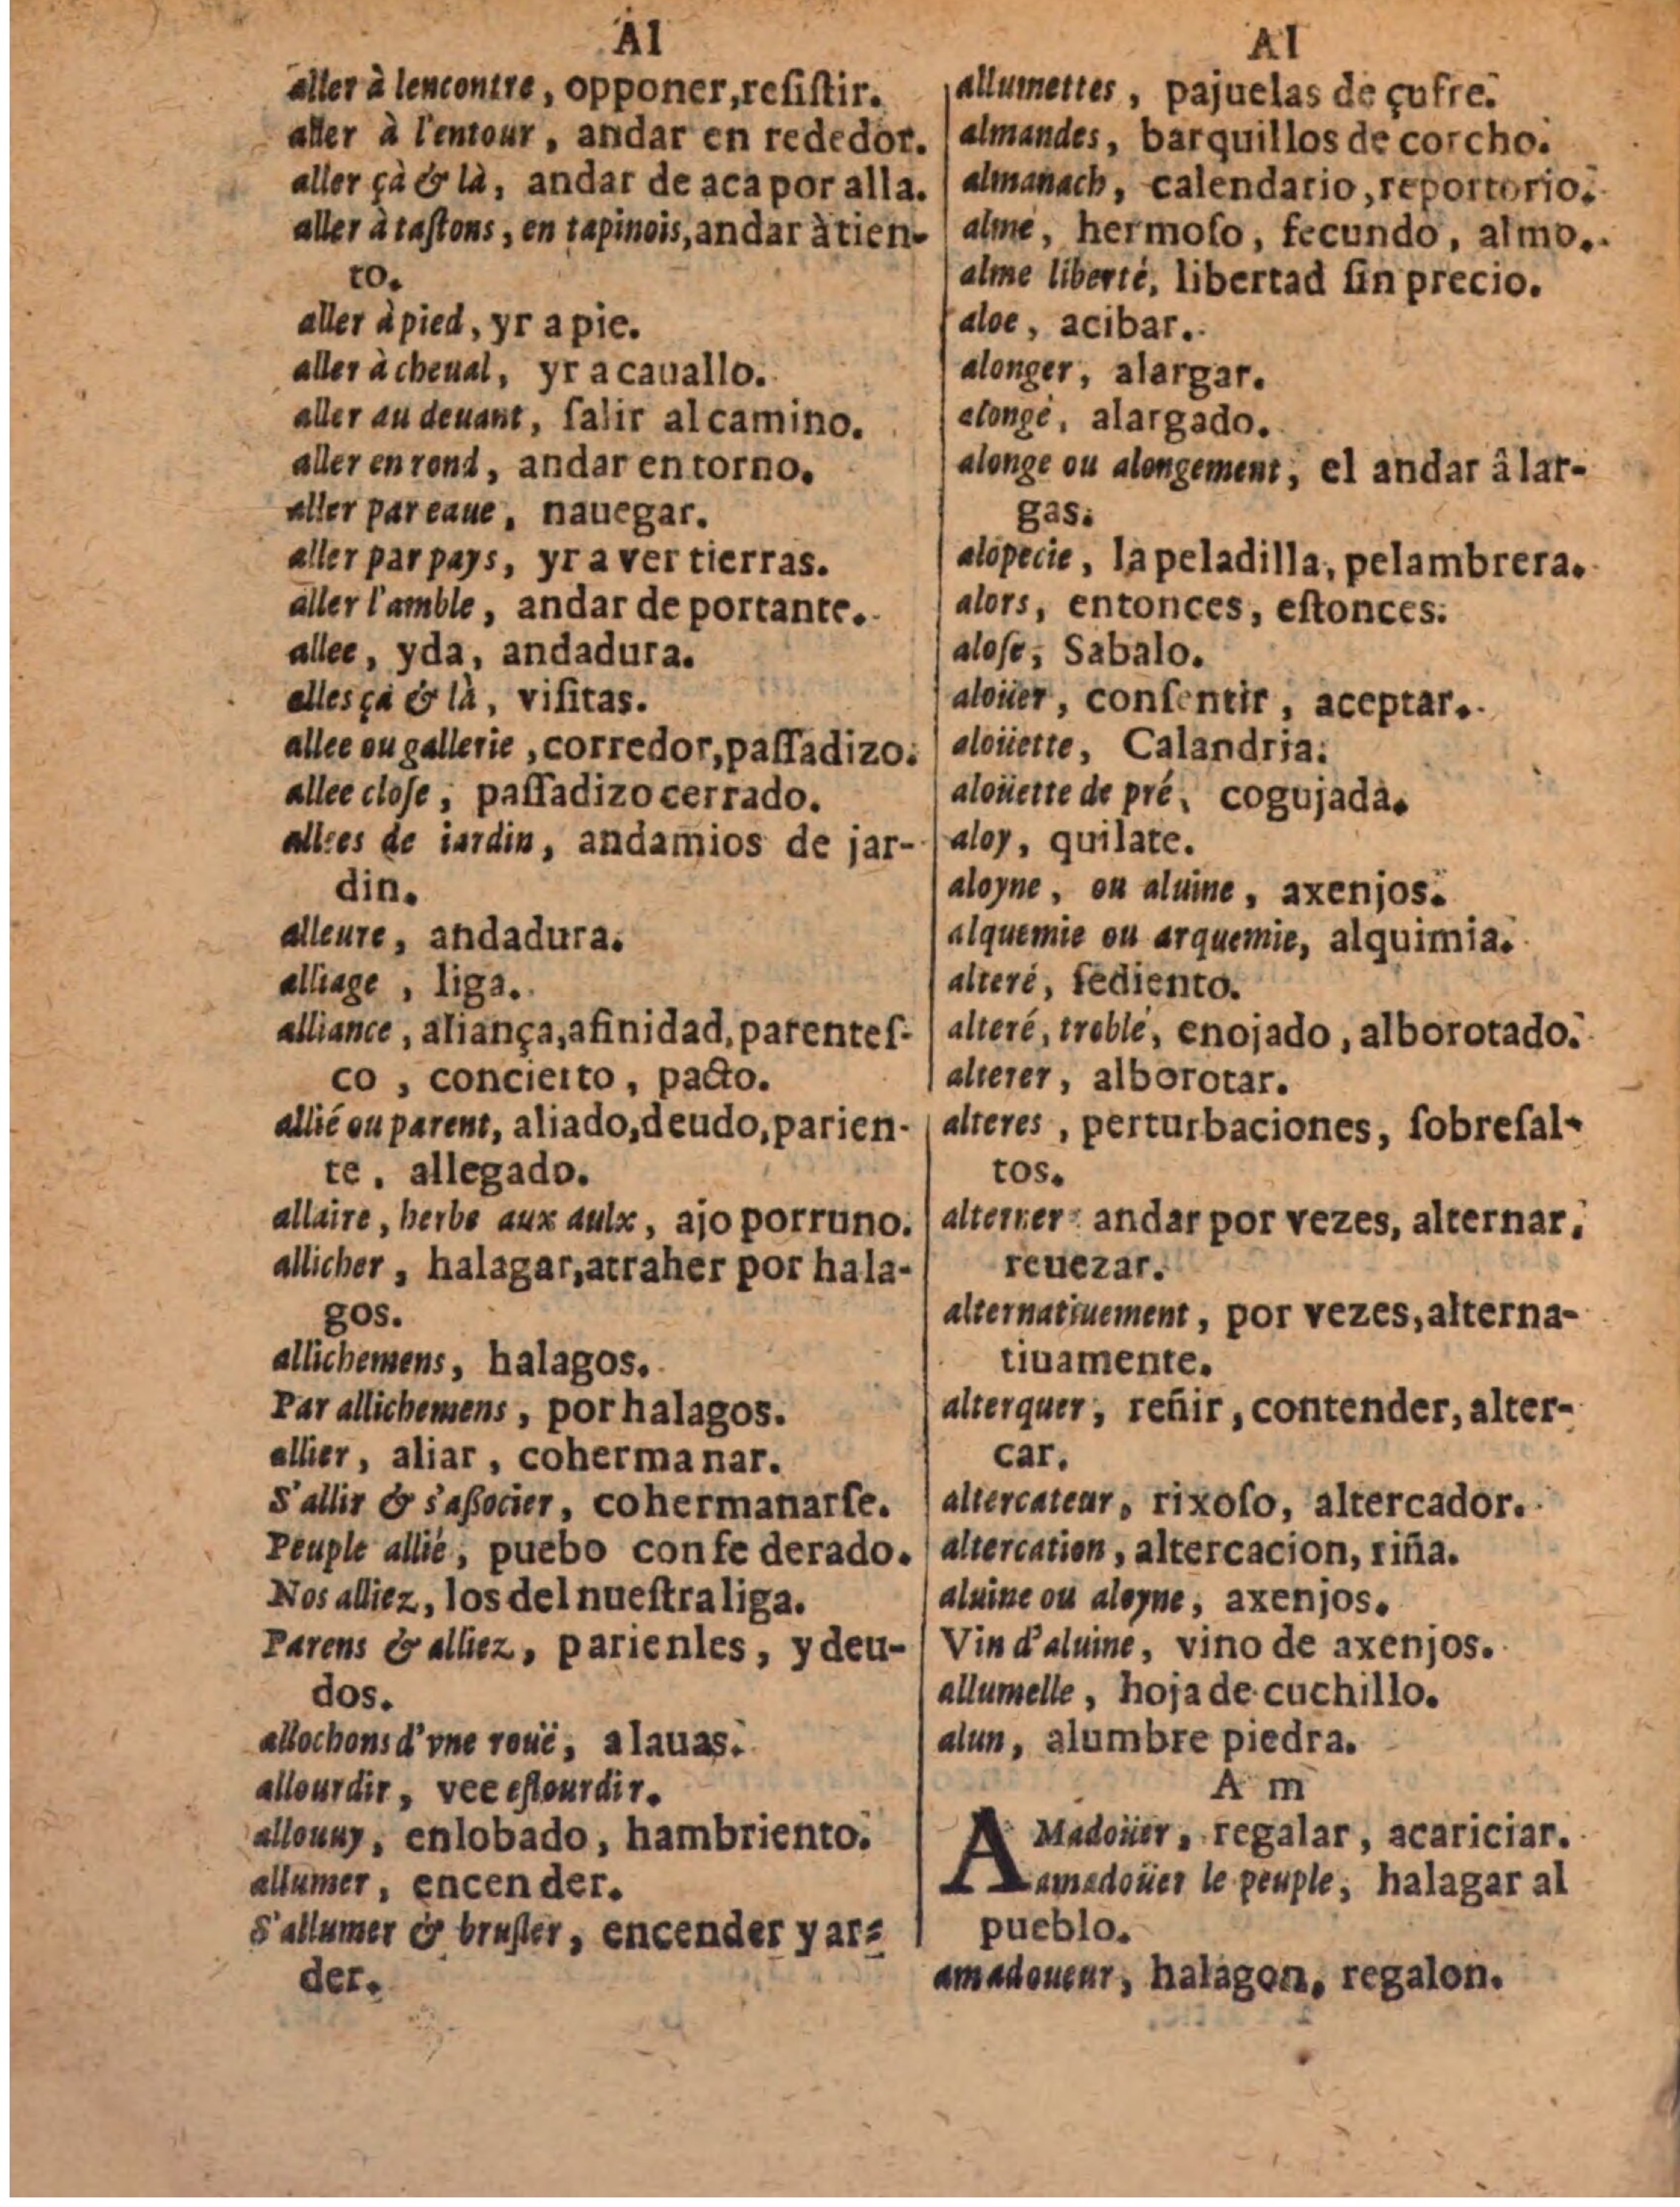 Al
aller à lencontre, opponer, reſiſtir.
aller à l'entour, andar en rededor.
aller çà & là, andar de aca por alla.
aller à taſtons, en tapinois, andar à tien-
to.
aller à pied, yr a pie.
aller à cheual, yr a cauallo.
aller au deuant, ſalir al camino.
aller en rond, andar en torno.
aller par eaue, nauegar.
aller par pays, yr a ver tierras.
aller l'amble, andar de portante.
allee, yda, andadura.
alles çà & là, viſitas.
allee ou gallerie, corredor, paſſadizo.
allee cloſe, paſſadizo cerrado.
allees de iardin, andamios de jar-
din.
alleure, andadura.
alliage, liga.
alliance, aliança, afinidad, parenteſ-
co, concierto, pacto.
allié ou parent, aliado, deudo, parien-
te, allegado.
allaire, herbe aux aulx, ajo porruno.
allicher, halagar, atraher por hala-
gos.
allichemens, halagos.
Par allichemens, por halagos.
allier, aliar, cohermanar.
S'allir & s'aßocier, cohermanarſe.
Peuple allié, puebo confe derado.
Nos alliez, los del nueſtra liga.
Parens & alliez, parienles, y deu-
dos.
allochons d'vne rouë, alauas.
allourdir, vee eſlourdir.
allouuy, enlobado, hambriento.
allumer, encender.
S'allumer & bruſler, encender y ar-
der.
Al
allumettes, pajuelas de çufre.
almandes, barquillos de corcho.
almanach, calendario, reportorio.
alme, hermoſo, fecundo, almo.
alme liberté, libertad ſin precio.
aloe, acibar.
alonger, alargar.
alongé, alargado.
alonge ou alongement, el andar â lar-
gas.
alopecie, la peladilla, pelambrera.
alors, entonces, eſtonces.
aloſe, Sabalo.
aloüer, conſentir, aceptar.
aloüette, Calandria.
aloüette de pré, cogujada.
aloy, quilate.
aloyne, ou aluine, axenjos.
alquemie ou arquemie, alquimia.
alteré, ſediento.
alteré, troblé, enojado, alborotado.
alterer, alborotar.
alteres, perturbaciones, ſobreſal-
tos.
alterner andar por vezes, alternar,
reuezar.
alternatiuement, por vezes, alterna-
tiuamente.
alterquer, reñir, contender, alter-
car.
altercateur, rixoſo, altercador.
altercation, altercacion, riña.
aluine ou aloyne, axenjos.
Vin d'aluine, vino de axenjos.
allumelle, hoja de cuchillo.
alun, alumbre piedra.
A m
AMadoüer, regalar, acariciar.
amadoüer le peuple, halagar al
pueblo.
amadoueur, halagon, regalon.